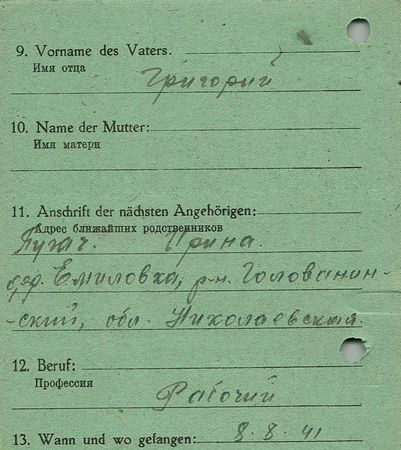 9. Vorname des Vaters.
Имя отца
Григорий
10. Name der Mutter:
Имя матери
11. Anschrift der nächsten Angehörigen:
Адрес ближайших родственников
Пугач. Ирина.
дер. Емиловка, р-н. Голованин-
-ский, обл. Николаевская.
12. Beruf:
Профессия
Рабочий
13. Wann und wo gefangen: 8.8.41